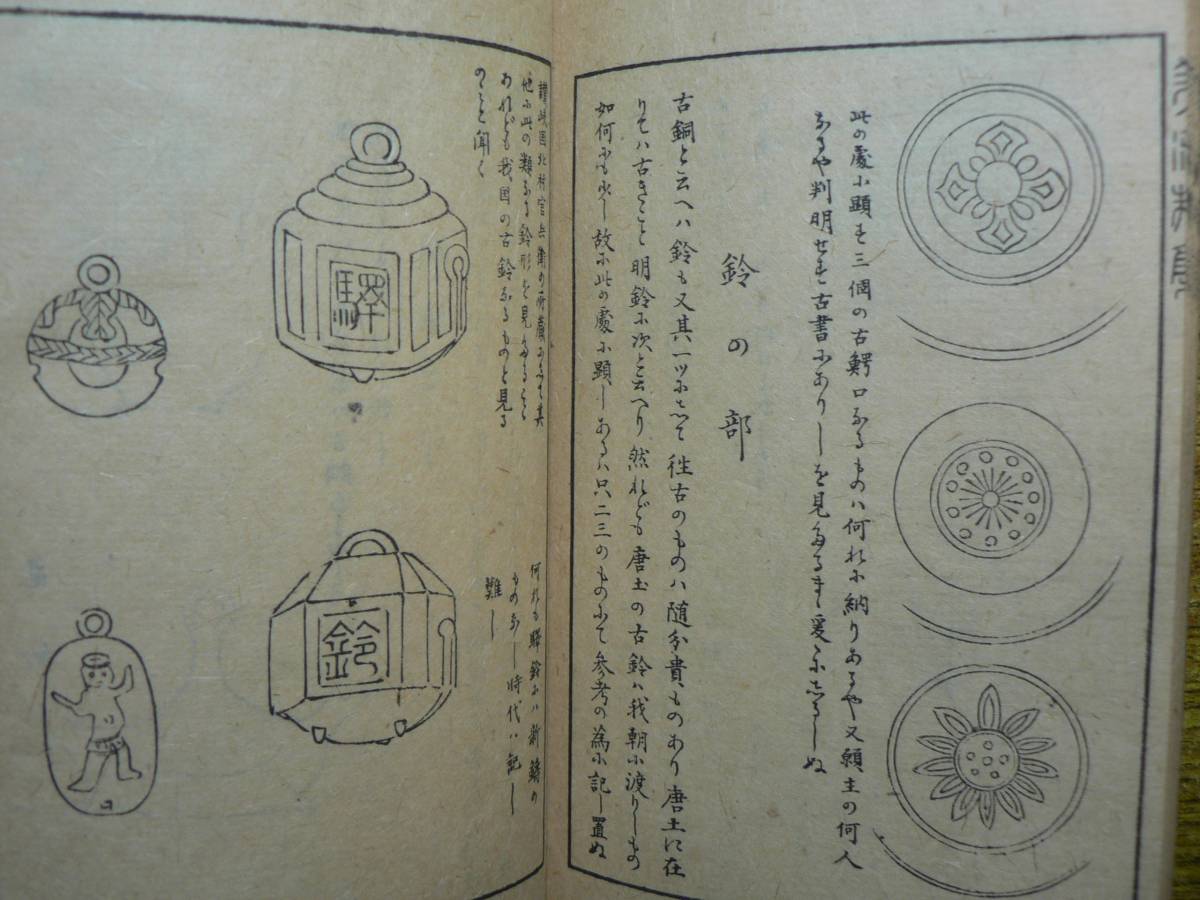 此の處に顕す三個の古鰐口なるものハ何れに納りあるや又願主の何人
なるや判明せず古書にありしを見たるまゝ爰にしるしぬ
鈴の部
古銅と云へハ鈴も又其一ツにして往古のものハ随分貴ものあり唐土に在
りてハ古きこと明鈴に次と云へり然れども唐土の古鈴ハ我朝に渡りしもの
如何にも少し故に此の處に顕しあるハ只二三のものにて参考の為に記し置ぬ
讃岐国北村官兵衛の所蔵にして其
他に此の類なる鈴形を見たること
あれども我国の古鈴なるものと見る
のこと聞く
驛
何れも驛鈴にハ新鋳の
ものなし時代ハ記し
難し
鈴